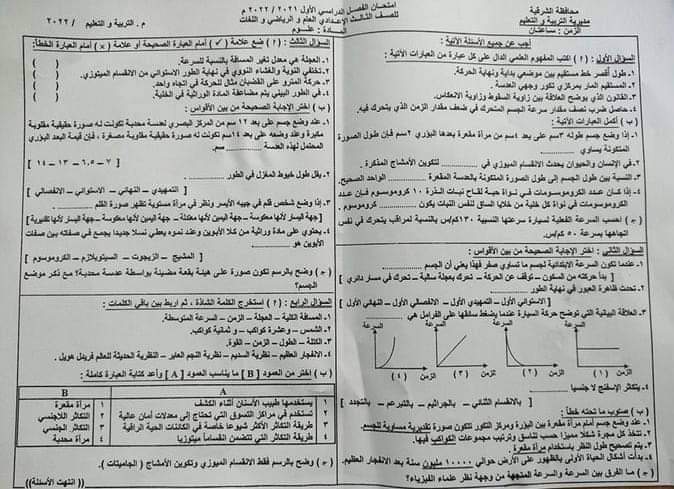 محافظة الشرقية
مديرية التربية و التعليم
الزمن : ساعتان
امتحان الفصل الدراسي الأول ٢٠٢١ / ٢٠٢٢ م
للصف الثالث الإعدادي العام و الرياضي و اللغات
المــادة : علـــوم
م . التربية و التعليم / ٢٠٢٢
أجب عن جميع الأسئلة الآتية :
السؤال الأول : ( ٢ ) اكتب المفهوم العلمي الدال على كل عبارة من العبارات الآتية :
١. طول أقصر خط مستقيم بين موضعي بداية ونهاية الحركة.
٢. المستقيم المار بمركزي تكور وجهي العدسة .
٣. القانون الذي يوضح العلاقة بين زاوية السقوط وزاوية الانعكاس.
٤. حاصل ضرب نصف مقدار سرعة الجسم المتحرك في ضعف مقدار الزمن الذي يتحرك فيه.
( ب ) أكمل العبارات الآتية :
١. إذا وضع جسم طوله ٣سم على بعد ٤سم من مرآة مقعرة بعدها البؤري ٢سم فإن طول الصورة
المتكونة يساوي ............
٢. في الإنسان والحيوان يحدث الانقسام الميوزي في ............ لتكوين الأمشاج المذكرة .
٣. النسبة بين طول الجسم إلى طول الصورة المتكونة بالعدسة المقعرة ............ الواحد الصحيح.
٤. إذا كان عدد الكروموسومات في نواة حبة لقاح نبات البذرة ١٠ كروموسوم فإن عدد
الكروموسومات في نواة كل خلية من خلايا الساق لنفس النبات يكون ............ كروموسوم .
( جـ ) احسب السرعة الفعلية لسيارة سرعتها النسبية ١٣٠كم/س بالنسبة لمراقب يتحرك في نفس
اتجاهها بسرعة ٥٠ كم/س.
السؤال الثاني : اختر الإجابة الصحيحة من بين الأقواس :
١. عندما تكون السرعة الابتدائية لجسم ما تساوي صفر فهذا يعني أن الجسم ............
[ بدأ حركته من السكون – توقف عن الحركة – تحرك بعجلة سالبة – تحرك في مسار دائري ]
٢. تحدث ظاهرة العبور في نهاية الطور ............
[ الاستوائي الأول – التمهيدي الأول – الانفصالي الأول – النهائي الأول ]
٣. العلاقة البيانية التي توضح حركة السيارة عندما يضغط سائقها على الفرامل هي ............
السرعة السرعة السرعة السرعة
الزمن الزمن الزمن الزمن
( ١ ) ( ٢ ) ( ٣ ) ( ٤ )
٤. يتكاثر الإسفنج لا جنسيا ............
[ بالانقسام الثنائي – بالجراثيم – بالتبرعم – بالتجدد ]
( ب ) صوب ما تحته خطأ :
١. عند وضع جسم أمام مرآة مقعرة بين البؤرة ومركز التكور تتكون صورة تقديرية مساوية للجسم.
٢. تتخذ كل مجرة شكلا مميزا حسب تناسق وترتيب مجموعات الكواكب فيها.
٣. يتم تصحيح طول النظر باستخدام مرآة مقعرة .
٤. بدأت أشكال الحياة الأولى بالظهور على الأرض حوالي ١٠٠٠٠ مليون سنة بعد الانفجار العظيم.
( جـ ) ما الفرق بين السرعة والسرعة المتجهة من وجهة نظر علماء الفيزياء؟
السؤال الثالث : ( ٢ ) ضع علامة ( ✓ ) أمام العبارة الصحيحة أو علامة ( × ) أمام العبارة الخطأ:
١. العجلة هي معدل تغير المسافة بالنسبة للسرعة. ( )
٢. تختفي النوية والغشاء النووي في نهاية الطور الاستوائي من الانقسام الميتوزي. ( )
٣. حركة المترو على القضبان مثال للحركة في اتجاه واحد. ( )
٤. في الطور البيني يتم مضاعفة المادة الوراثية في الخلية. ( )
( ب ) اختر الإجابة الصحيحة من بين الأقواس:
١. عند وضع جسم على بعد ١٢ سم من المركز البصري لعدسة محدبة تكونت له صورة حقيقية مقلوبة
مكبرة وعند وضعه على بعد ١٤سم تكونت له صورة حقيقية مقلوبة مصغرة ، فإن قيمة البعد البؤري
المحتمل لهذه العدسة ............ سم.
[ ٧ – ٦.٥ – ١٣ – ١٤ ]
٢. يقل طول خيوط المغزل في الطور ............
[ التمهيدي – النهائي – الاستوائي – الانفصالي ]
٣. إذا وضع شخص قلم في جيبه الأيسر ونظر في مرآة مستوية تظهر صورة القلم ............
[جهة اليسار لأنها معكوسة – جهة اليمين لأنها معتدلة – جهة اليمين لأنها معكوسة – جهة اليسار لأنها تقديرية]
٤. يحتوي على مادة وراثية من كلا الأبوين وعند نموه يعطي نسلا جديدا يجمع في صفاته بين صفات
الأبوين هو ............
[ المشيج – الزيجوت – السيتوبلازم – الكروموسوم ]
( جـ ) وضح بالرسم تكون صورة على هيئة بقعة مضيئة بواسطة عدسة محدبة؟ مع ذكر موضع
الجسم؟
السؤال الرابع : ( ٢ ) استخرج الكلمة الشاذة ، ثم اربط بين باقي الكلمات :
١. المسافة الكلية – العجلة – الزمن – السرعة المتوسطة.
٢. الشمس – وعشرة كواكب – و ثمانية كواكب.
٣. الكتلة – الطول – الزمن – القوة.
٤. الانفجار العظيم – نظرية السديم – نظرية النجم العابر – النظرية الحديثة للعالم فريد هويل .
( ب ) اختر من العمود [ B ] ما يناسب العمود [ A ] وأعد كتابة العبارة كاملة :
A B
١ يستخدمها طبيب الأسنان أثناء الكشف ١ مرآة مقعرة
٢ تستخدم في مراكز التسوق التي تحتاج إلى معدلات أمان عالية ٢ التكاثر اللاجنسي
٣ طريقة التكاثر الأكثر شيوعا خاصة في الكائنات الحية الراقية ٣ التكاثر الجنسي
٤ طريقة التكاثر التي تتضمن انقساماً ميتوزيا ٤ مرآة محدبة
( جـ ) وضح بالرسم فقط الانقسام الميوزي وتكوين الأمشاج ( الجاميتات ).
(( انتهت الأسئلة))